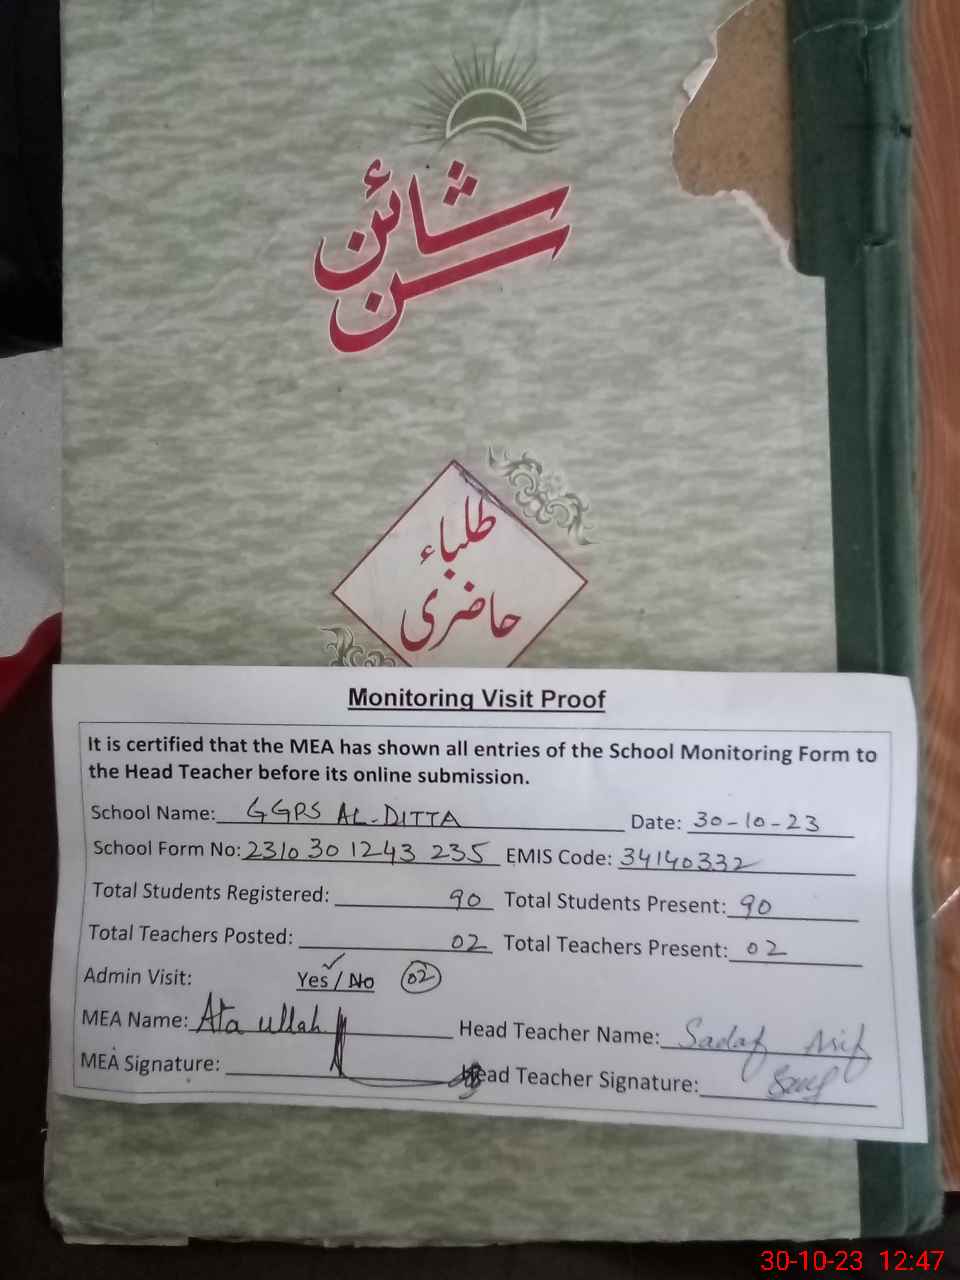 سن شائن
طلباء
حاضری
Monitoring Visit Proof
It is certified that the MEA has shown all entries of the School Monitoring Form to
the Head Teacher before its online submission.
School Name: GGPS AL-DITTA Date: 30-10-23
School Form No: 2310 30 1243 235 EMIS Code: 34140332
Total Students Registered: 90 Total Students Present: 90
Total Teachers Posted: 02 Total Teachers Present: 02
Admin Visit: Yes / No 02
MEA Name: Ata ullah Head Teacher Name: Sadaf Asif
MEA Signature: Head Teacher Signature:
30-10-23 12:47